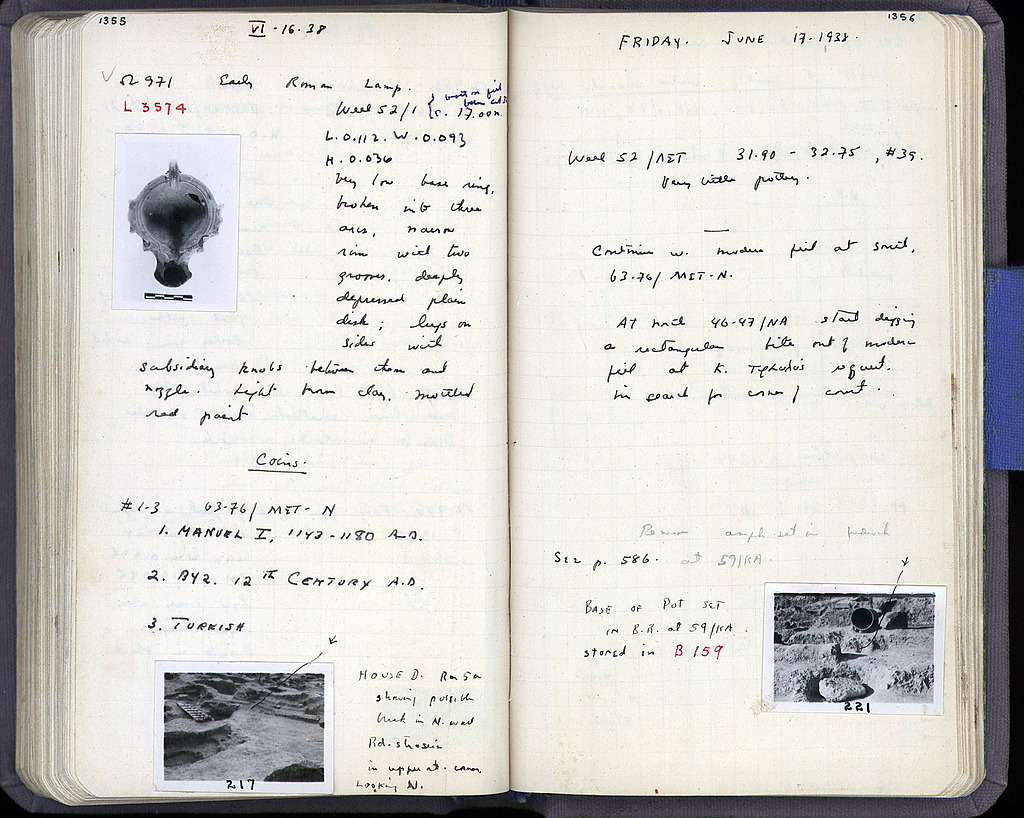 1355
VI-16-38
Ω 971 Early Roman Lamp.
L 3574
Well 52/1 c. 17.00 m.
L. 0.112. W. 0.093
H. 0.036
Very low base ring,
broken into three
arcs, narrow
rim with two
grooves, deeply
depressed plain
disk; lugs on
sides with
subsidiary knobs between them and
nozzle. Light brown clay, mottled
red paint
Coins.
#1-3 63-76/ MET-N
1. MANUEL I, 1143-1180 A.D.
2. BYZ. 12th CENTURY A.D.
3. TURKISH
HOUSE D. Rm 5a
showing possible
in N. wall
in upper
Looking N.
217
1356
FRIDAY. JUNE 17-1938.
Well 52/ 31.90 - 32.75, #39.
Very little pottery.
Continue w. modern fill at south,
63-76/ MET-N.
At north 46-47/NA start digging
a rectangular bite out of modern
fill at K. request.
in search for corner of court.
Roman amph set in
See p. 586. at 59/KA.
BASE OF POT SET
IN B.R. at 59/KA
stored in B 159
221